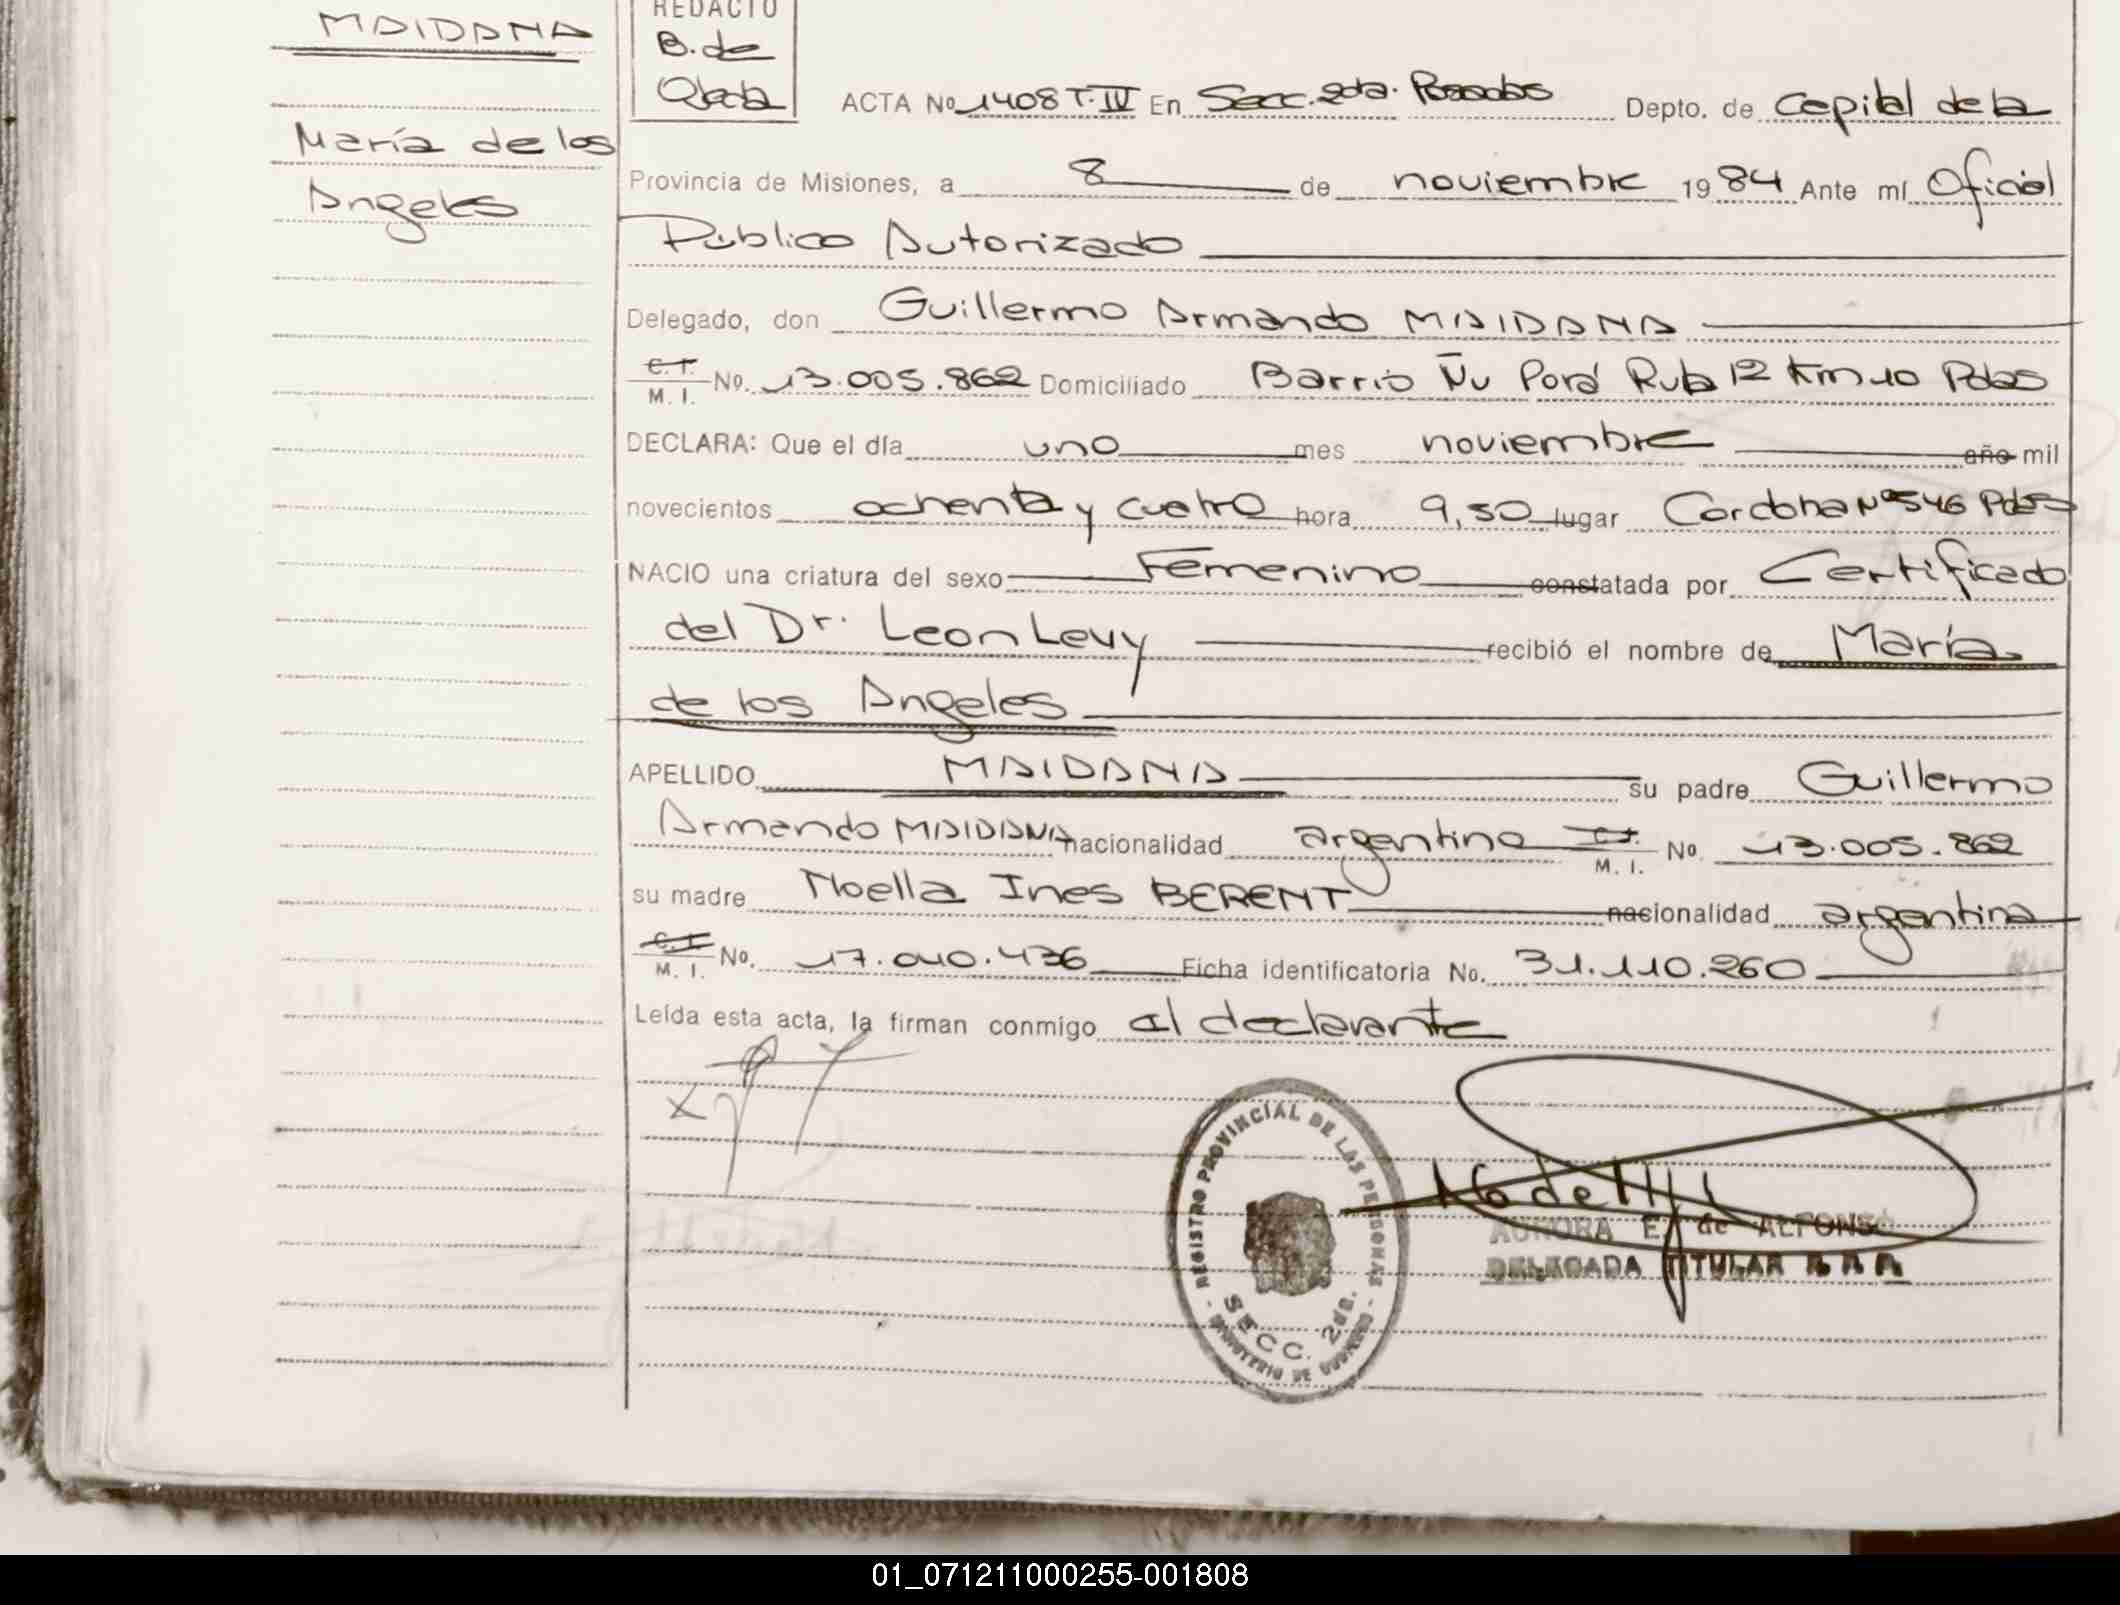 MAIDANA
María de los
Angeles
REDACTO
B. de
Ojeda
ACTA No 1408 T. IV En Secc. 2da. Posadas Depto. de Capital de la
Provincia de Misiones, a 8 de noviembre 1984 Ante mí Oficial
Público Autorizado
Delegado, don Guillermo Armando MAIDANA
C. I. M. I. No. 13.005.862 Domiciliado Barrio Ñu Porá Ruta 12 Km 10 Pdas
DECLARA: Que el día uno mes noviembre año mil
novecientos ochenta y cuatro hora 9,50 lugar Cordoba Nº 546 Pdas
NACIO una criatura del sexo Femenino constatada por Certificado
del Dr. Leon Levy recibió el nombre de María
de los Angeles
APELLIDO MAIDANA su padre Guillermo
Armando MAIDANA nacionalidad argentino C. I. M. I. No. 13.005.862
su madre Noella Ines BERENT nacionalidad argentina
C. I. M. I. No. 17.040.436 Ficha identificatoria No. 31.110.260
Leída esta acta, la firman conmigo el declarante
REGISTRO PROVINCIAL DE LAS PERSONAS
SECC. 2da.
MINISTERIO DE GOBIERNO
AURORA E. de ALFONSO
DELEGADA TITULAR
01_071211000255-001808